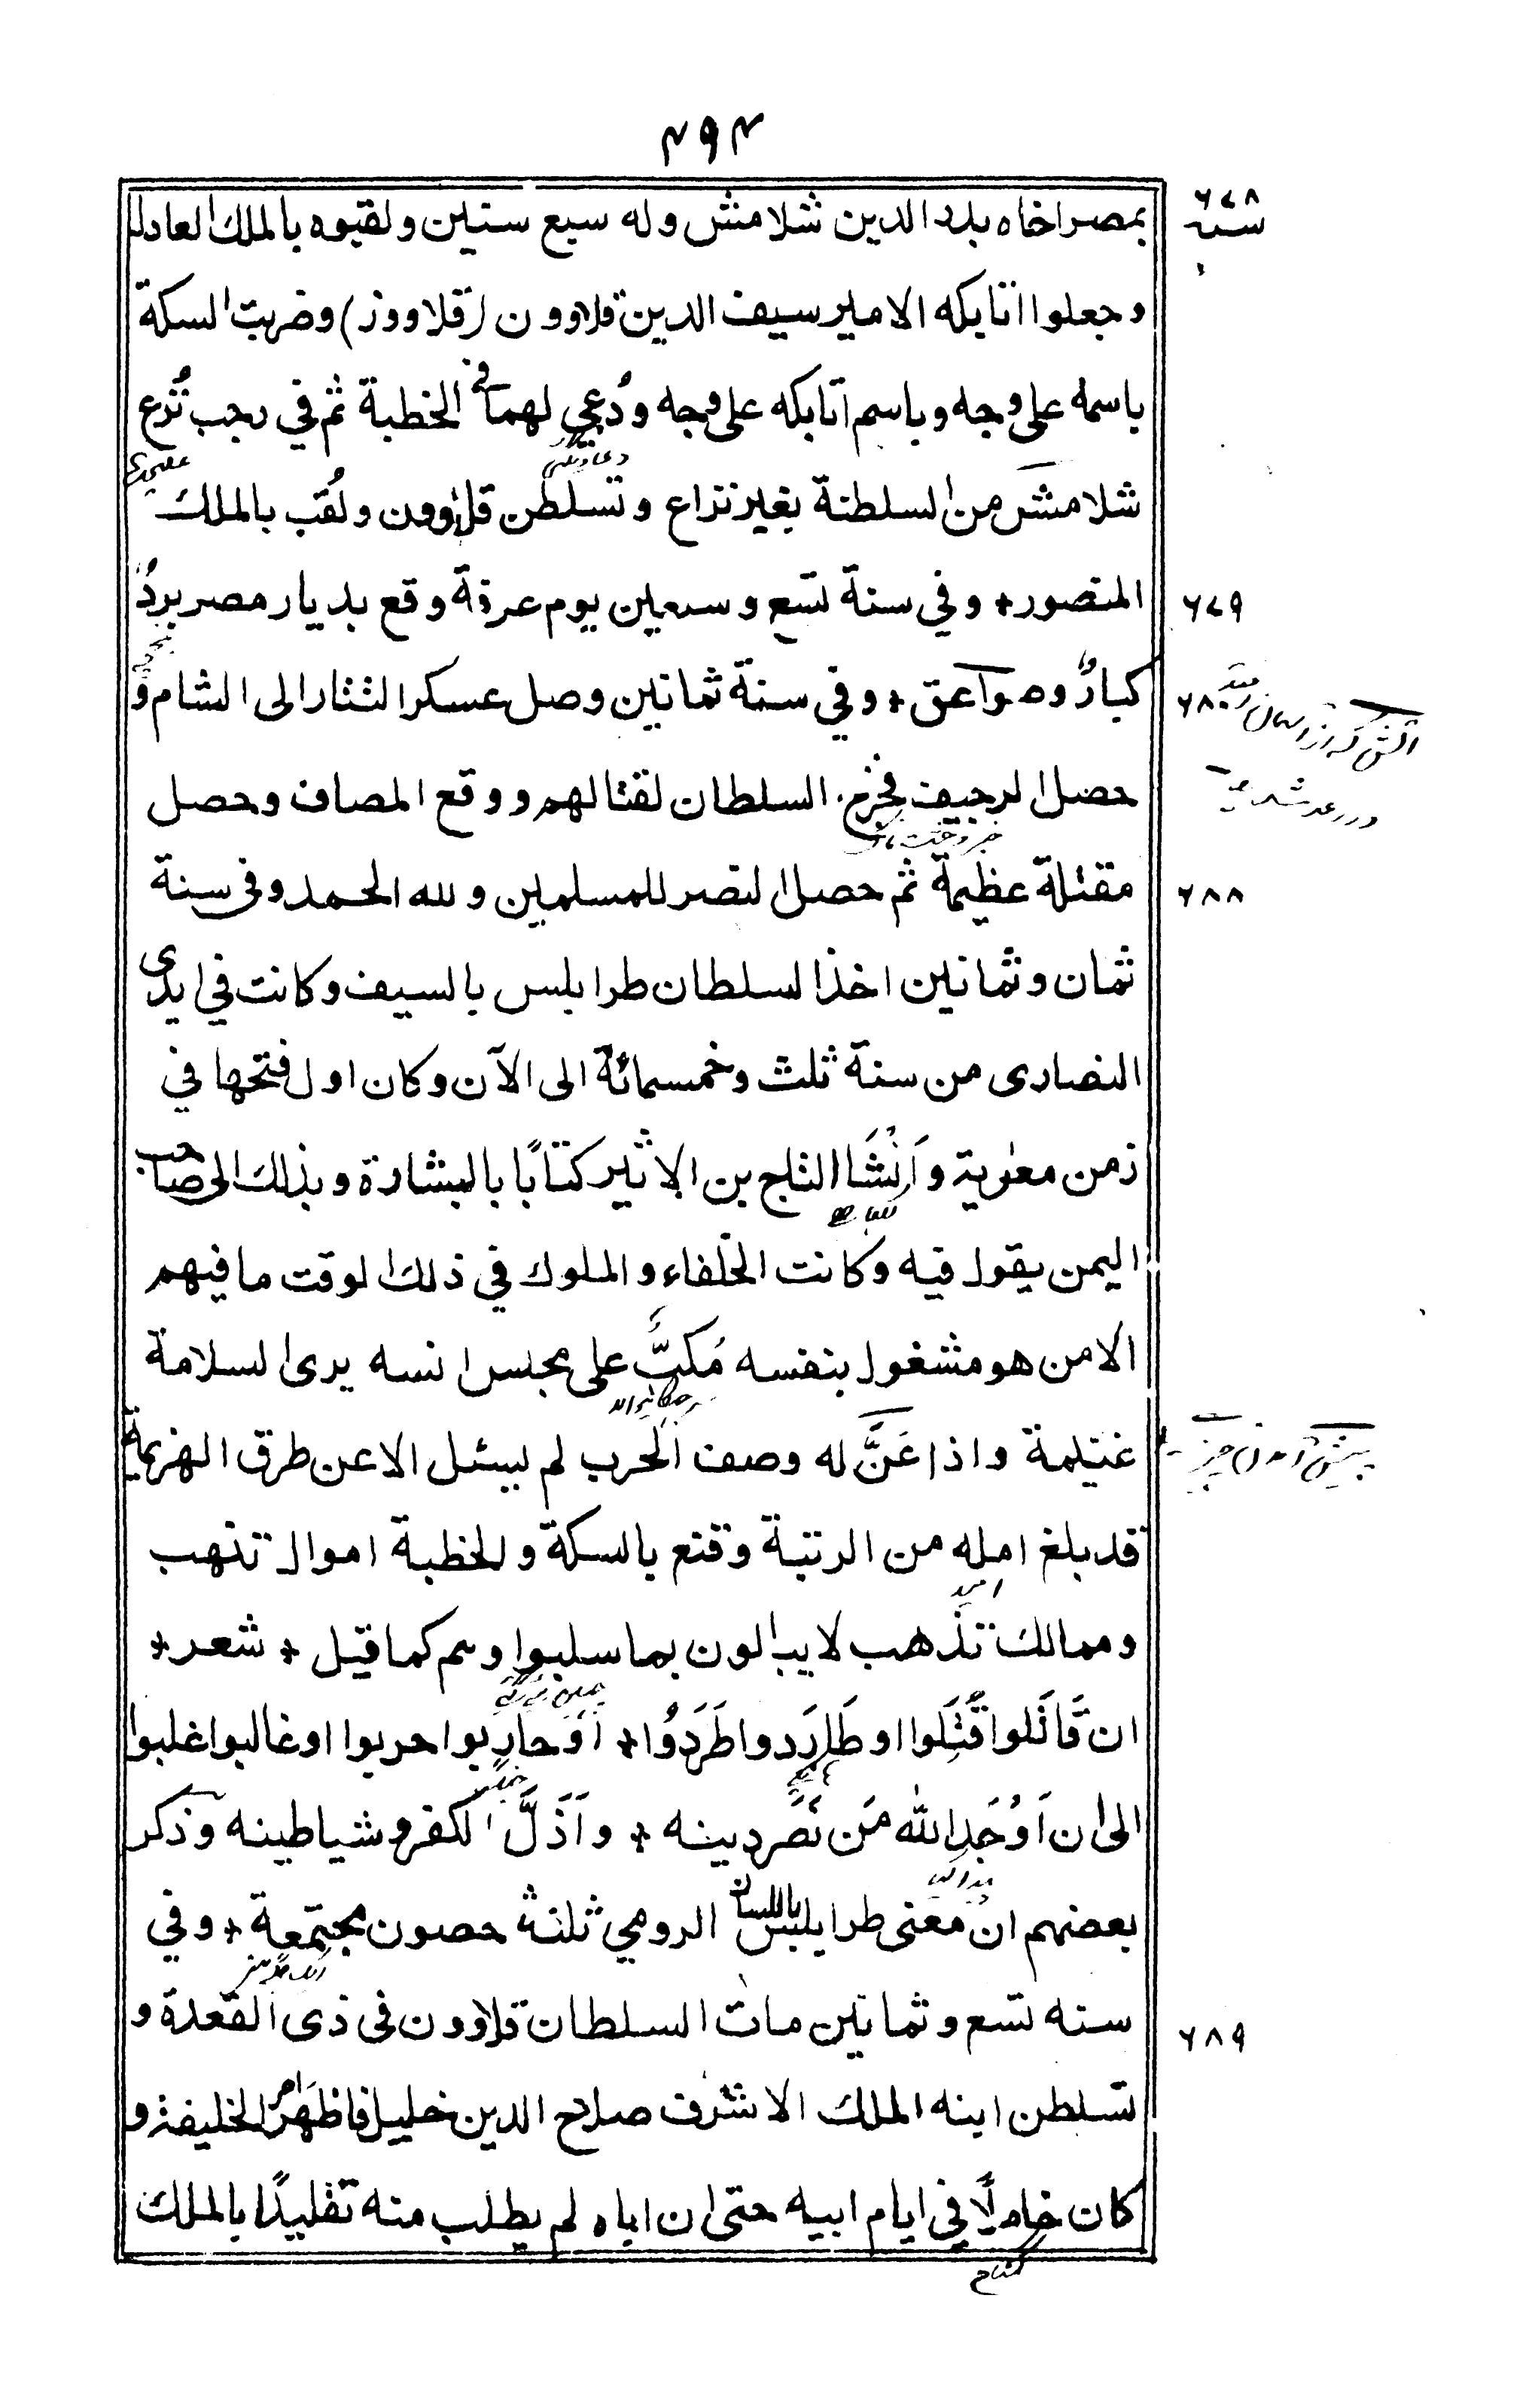 ۴۹۴
سنه ٦٧٨
بمصر اخاه بدر الدين شلامش وله سبع سنين ولقبوه بالملك العادل
وجعلوا اتابكه الامير سيف الدين قلاوون (قلاووز) وضربت السكة
باسمه على وجه وباسم اتابكه على وجه ودُعي لهما في الخطبة ثم في رجب نُزع
شلامش من السلطنة بغير نزاع وتسلطن قلاوون ولُقب بالملك
المنصور+ وفي سنة تسع وسبعين يوم عرفة وقع بديار مصر بردٌ
٦٧٩
كبارٌ وصواعق+ وفي سنة ثمانين وصل عسكر التتار الى الشام و
٦٨٠
حصل الرجيف فخرج السلطان لقتالهم ووقع المصاف وحصل
مقتلة عظيمة ثم حصل النصر للمسلمين ولله الحمد وفى سنة
٦٨٨
ثمان وثمانين اخذ السلطان طرابلس بالسيف وكانت في ايدى
النصارى من سنة ثلث وخمسمائة الى الآن وكان اول فتحها في
زمن معٰوية وَاَنْشَا التاج بن الاثير كتابًا بالبشارة وبذلك الى صاحب
اليمن يقول فيه وكانت الخلفاء والملوك في ذلك الوقت ما فيهم
الا من هو مشغول بنفسه مُكبٌّ على مجلس انسه يرى السلامة
غنيمة واذا عَنَّ له وصف الحرب لم يسئل الا عن طرق الهزيمة
قد بلغ امله من الرتبة وقنع بالسكة والخطبة اموال تنهب
وممالك تذهب لا يبالون بما سلبوا وهم كما قيل + شعر +
ان قَاتَلوا قُتِلَوا او طَارَدوا طَرَدُوا+ اَوْ حاربوا حربوا او غالبوا غلبوا
الى ان اَوْجَد الله مَن نَصَر دينه + واَذَلَّ الكفر وشياطينه وذكر
بعضهم ان معنى طرابلس باللسان الرومي ثلثة حصون مجتمعة+ وفي
سنه تسع وثمانين مات السلطان قلاوون فى ذى القعدة و
٦٨٩
تسلطن ابنه الملك الاشرف صلاح الدين خليل فاظهَرَ امر الخليفة و
كان خاملًا في ايام ابيه حتى ان اباه لم يطلب منه تقليدًا بالملك